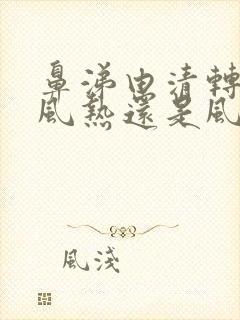 鼻涕由清轉
風熱還是風
風淺